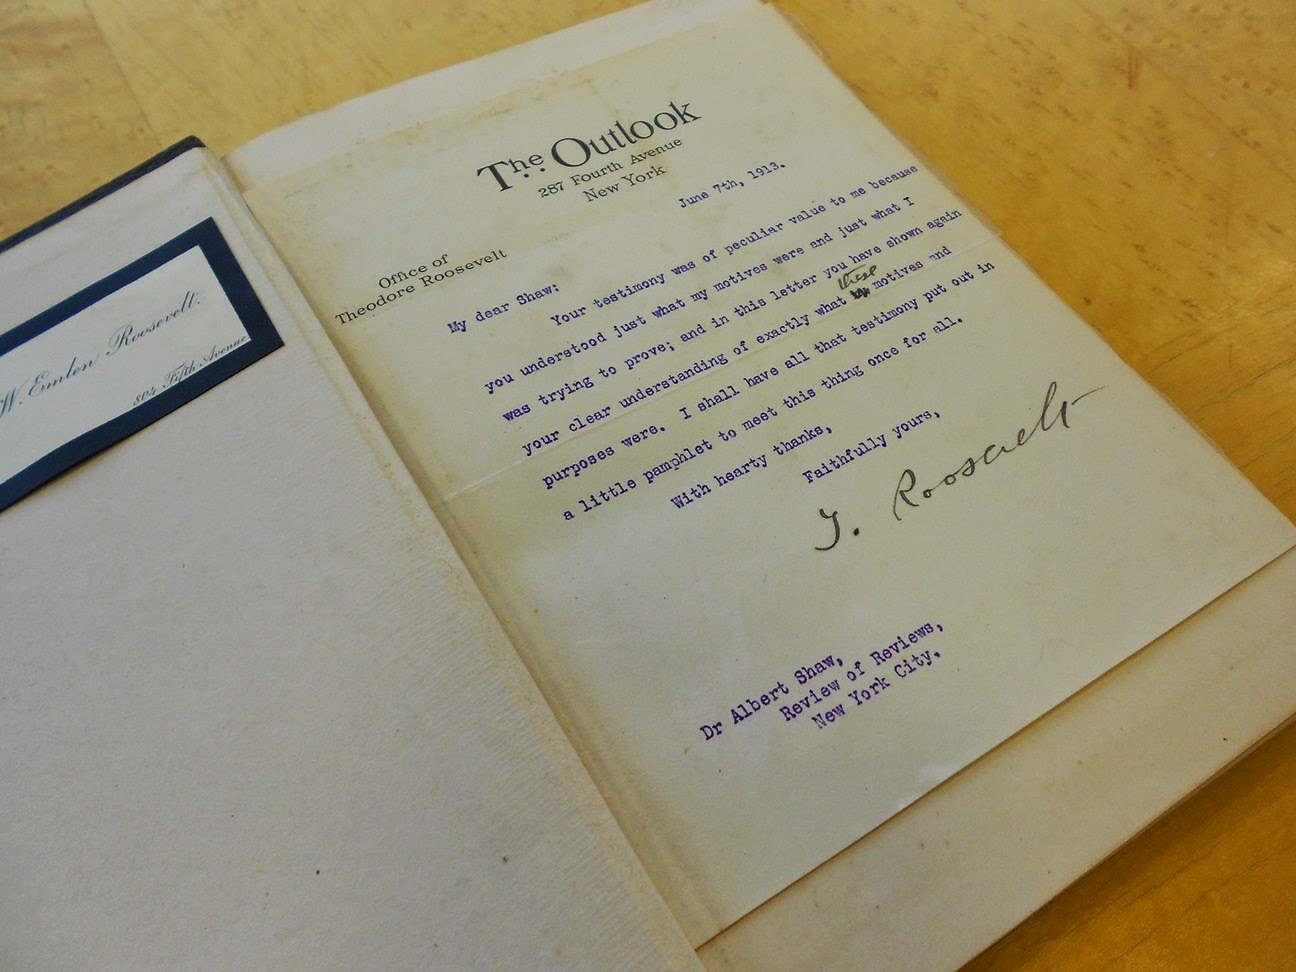 W. Emlen Roosevelt.
804 Fifth Avenue
The Outlook
287 Fourth Avenue
New York
Office of
Theodore Roosevelt
June 7th, 1913.
My dear Shaw:
Your testimony was of peculiar value to me because
you understood just what my motives were and just what I
was trying to prove; and in this letter you have shown again
these
your clear understanding of exactly what motives and
purposes were. I shall have all that testimony put out in
a little pamphlet to meet this thing once for all.
With hearty thanks,
Faithfully yours,
T. Roosevelt
Dr Albert Shaw,
Review of Reviews,
New York City.